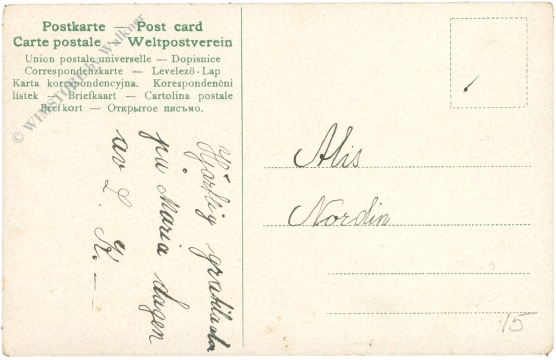 Postkarte — Post card
Carte postale — Weltpostverein
Union postale universelle — Dopisnice
Correspondenzkarte — Levelező-Lap
Karta korespondencyjna. Korespondenční
lístek — Briefkaart — Cartolina postale
Brefkort — Открытое письмо.
© WIMSTORE by Walkner
Hjärtlig gratulation
på Maria dagen
av L. K. —
Alis
Nordin
15